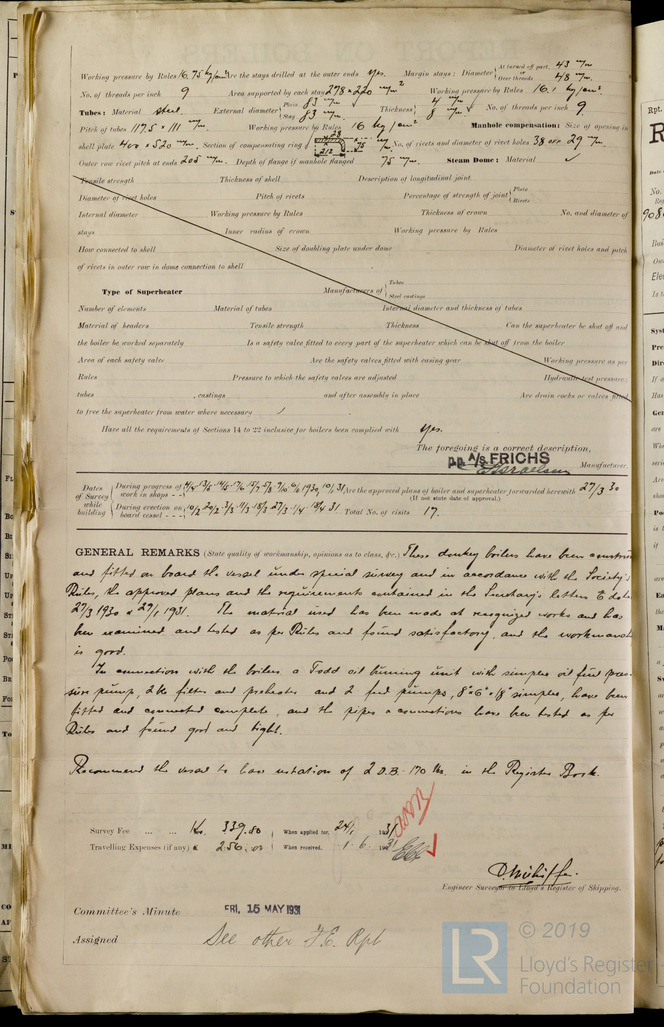 Working pressure by Rules 16.75 kg/cm² Are the stays drilled at the outer ends Yes. Margin stays: Diameter { At turned off part, 43 m/m or Over threads 48 m/m
No. of threads per inch 9 Area supported by each stay 278 × 220 m/m² Working pressure by Rules 16.1 kg/cm²
Tubes: Material Steel External diameter { Plain 83 m/m Stay 83 m/m Thickness { 4 m/m 8 m/m No. of threads per inch 9.
Pitch of tubes 117.5 × 111 m/m Working pressure by Rules 16 kg/cm² Manhole compensation: Size of opening in
shell plate 400 × 520 m/m. Section of compensating ring 28 75 212 m/m No. of rivets and diameter of rivet holes 38 29 m/m.
Outer row rivet pitch at ends 205 m/m. Depth of flange if manhole flanged 75 m/m Steam Dome: Material ✓
Tensile strength Thickness of shell Description of longitudinal joint
Diameter of rivet holes Pitch of rivets Percentage of strength of joint { Plate Rivets
Internal diameter Working pressure by Rules Thickness of crown No. and diameter of
stays Inner radius of crown Working pressure by Rules
How connected to shell Size of doubling plate under dome Diameter of rivet holes and pitch
of rivets in outer row in dome connection to shell
Type of Superheater Manufacturers of { Tubes Steel castings
Number of elements Material of tubes Internal diameter and thickness of tubes
Material of headers Tensile strength Thickness Can the superheater be shut off and
the boiler be worked separately Is a safety valve fitted to every part of the superheater which can be shut off from the boiler
Area of each safety valve Are the safety valves fitted with easing gear Working pressure as per
Rules Pressure to which the safety valves are adjusted Hydraulic test pressure:
tubes , castings and after assembly in place Are drain cocks or valves fitted
to free the superheater from water where necessary ✓
Have all the requirements of Sections 14 to 22 inclusive for boilers been complied with Yes.
The foregoing is a correct description,
pp. A/S FRICHS Manufacturer.
Dates of Survey while building { During progress of work in shops - - 1930, 10/1 31 Are the approved plans of boiler and superheater forwarded herewith 27/3 30
(If not state date of approval.)
During erection on board vessel - - - 31 Total No. of visits 17.
GENERAL REMARKS (State quality of workmanship, opinions as to class, &c.) These donkey boilers have been
and fitted on board the vessel under special survey and in accordance with the Society's
Rules, the approved plans and the requirements contained in the Secretary's letters E
27/3 1930 & 29/1 1931. The material used has been made at recognized works and has
been examined and tested as per Rules and found satisfactory, and the
is good.
In connection with the boilers a Todd oil burning unit with simplex oil fuel
pump, filter and preheater and 2 feed pumps, 8"×6"×8" simplex, have been
fitted and connected complete, and the pipes & connections have been tested as per
Rules and found good and tight.
Recommend the vessel to have notation of 2 D.B. 170 lbs. in the Register Book.
Survey Fee ... ... Kr. 339.80 When applied for, 24/ 1931
Travelling Expenses (if any) £ 256.00 When received, 1-6 1931
Engineer Surveyor to Lloyd's Register of Shipping.
Committee's Minute FRI. 15 MAY 1931
Assigned See other F.E. Rpt
LR © 2019
Lloyd's Register
Foundation
Rpt.